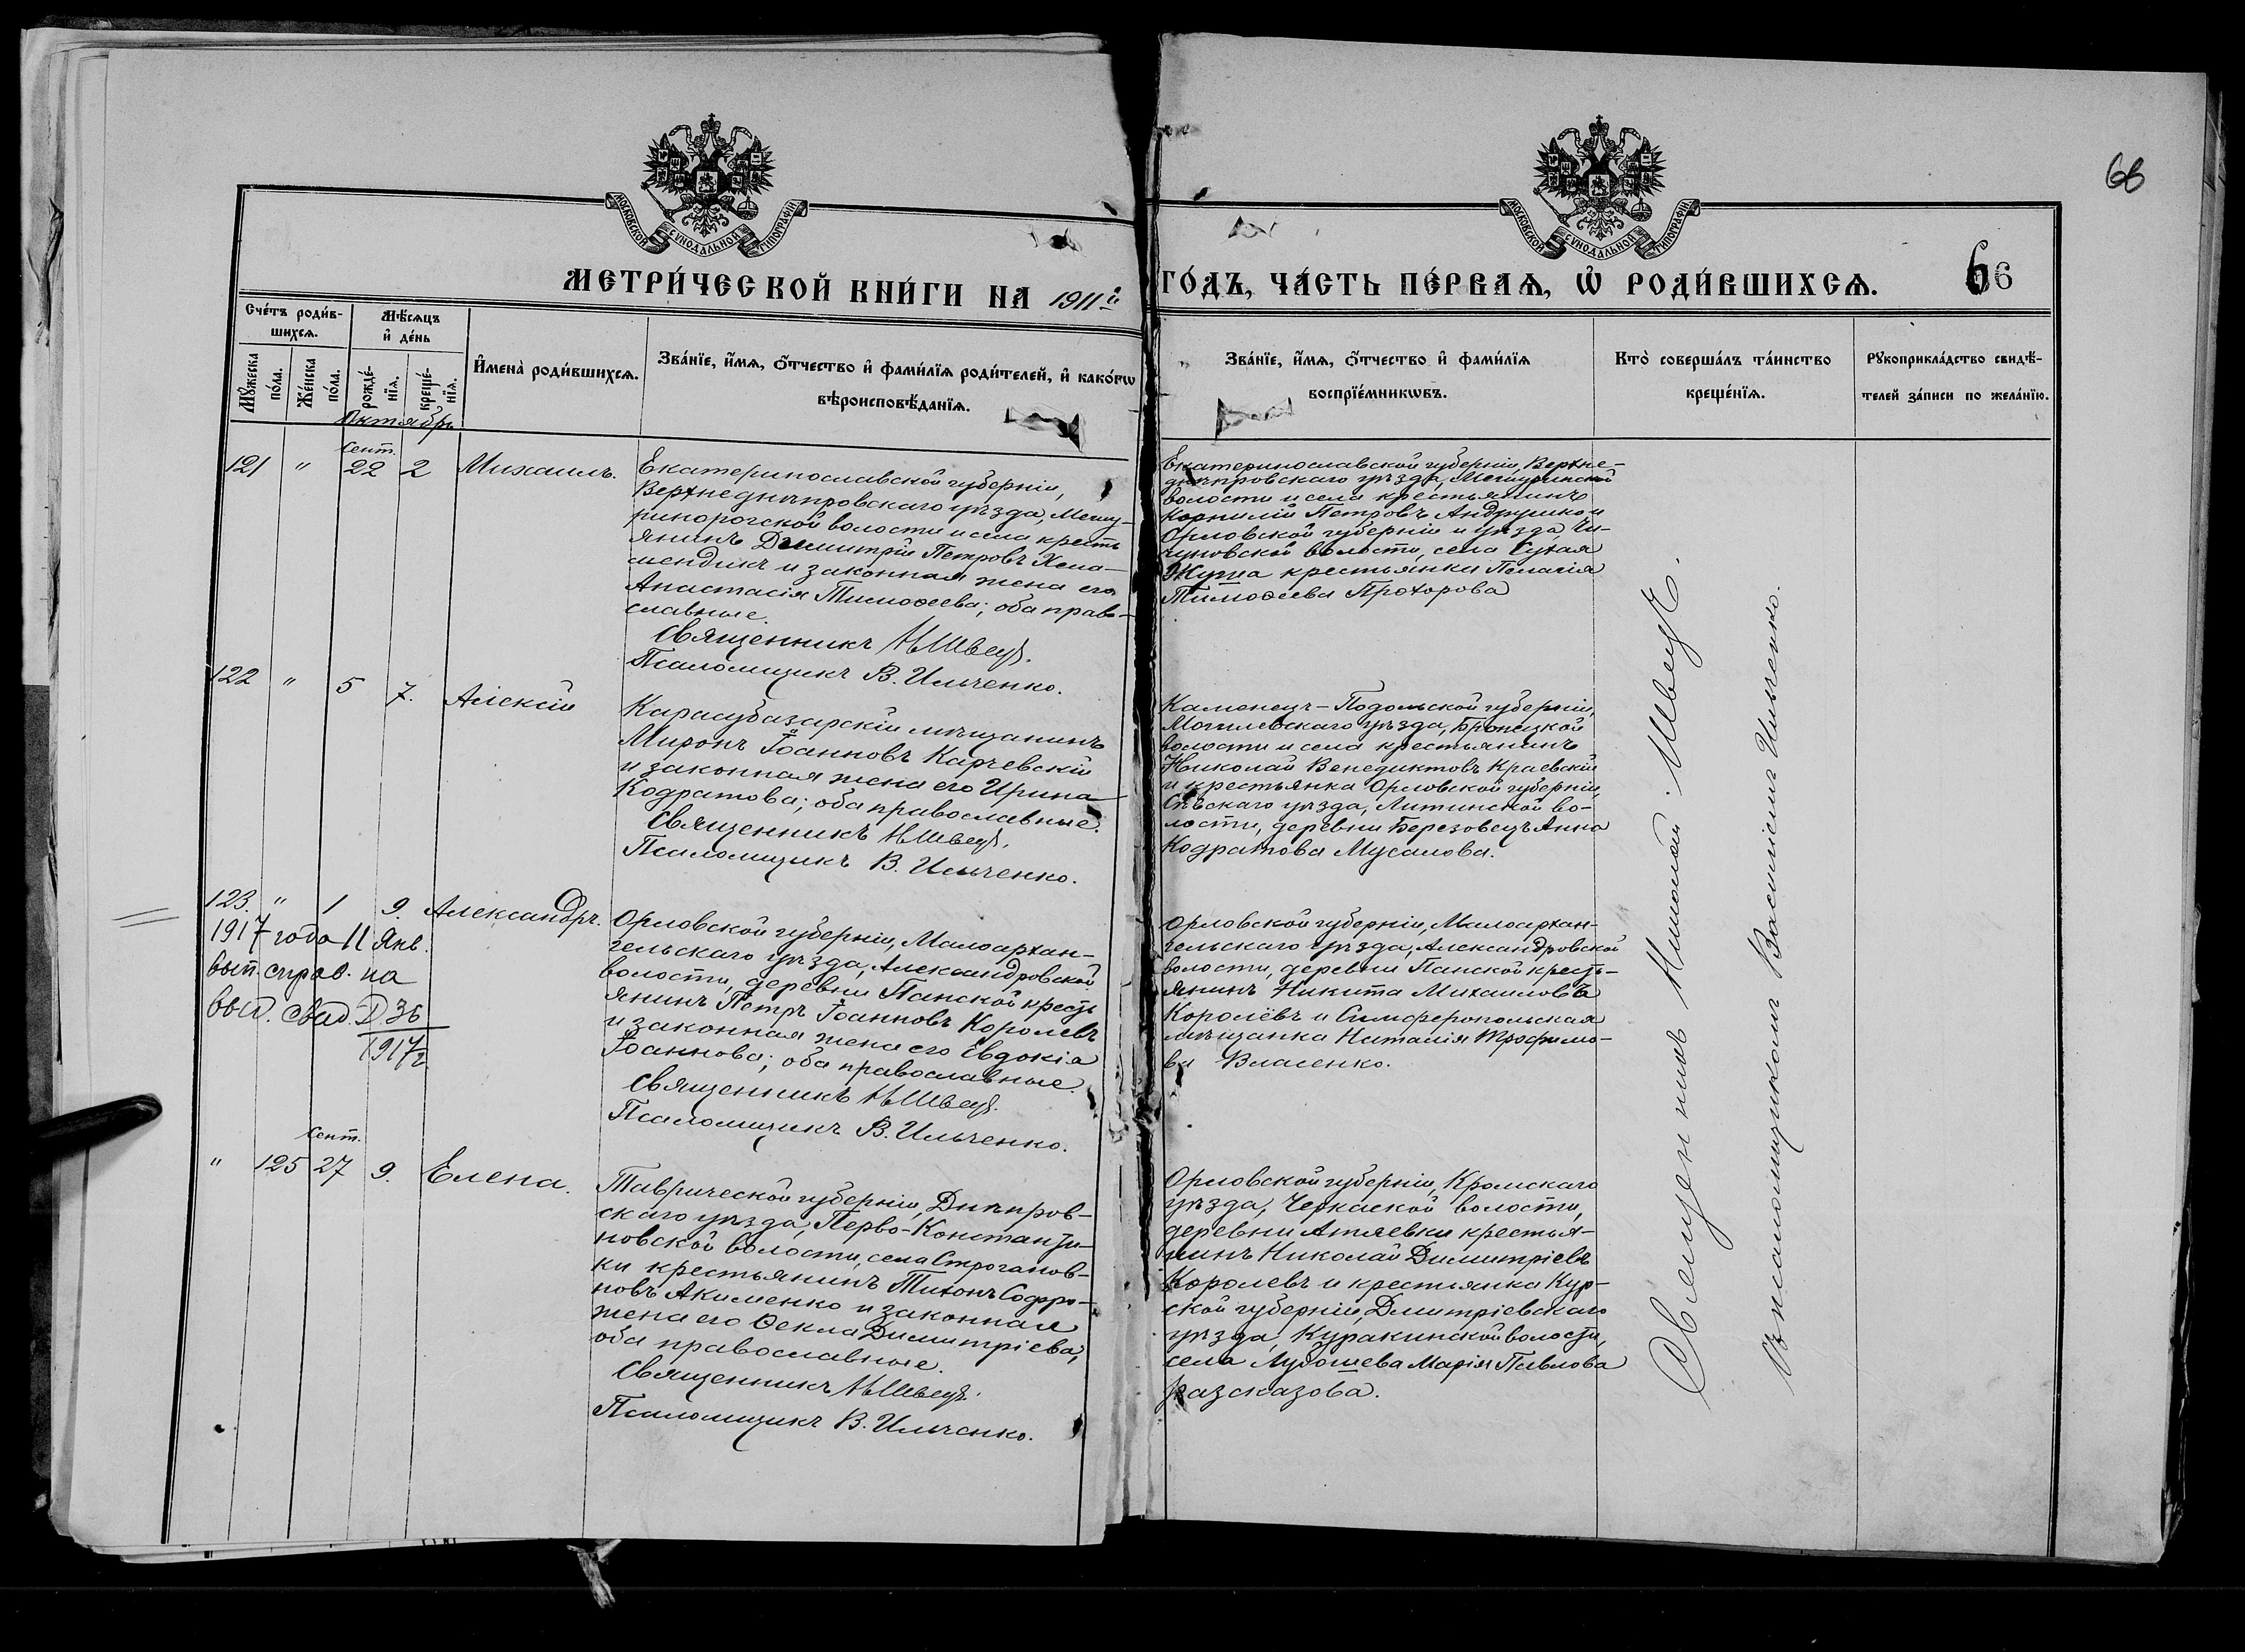 66
МОСКОВСКОЙ СУНОДАЛЬНОЙ ТИПОГРАФIИ
МОСКОВСКОЙ СУНОДАЛЬНОЙ ТИПОГРАФIИ
МЕТРИ́ЧЕСКОЙ КНИ́ГИ НА 1911й
ГО́ДЪ, ЧА́СТЬ ПЕ́РВАѦ, Ѡ҆ РОДИ́ВШИХСѦ.
66
Сче́тъ роди́в-
шихсѧ.
Мꙋжеска по́ла.
Же́нска по́ла.
Мѣ́сѧцъ
и҆ де́нь
рожде́-нїѧ.
креще́-нїѧ.
И҆мена̀ роди́вшихсѧ.
Зва́нїе, и҆́мѧ, ѻ҆́тчество и҆ фами́лїѧ роди́телей, и҆ како́гѡ
вѣроисповѣ́данїѧ.
Зва́нїе, и҆́мѧ, ѻ҆́тчество и҆ фами́лїѧ
воспрїе́мникѡвъ.
Кто̀ соверша́лъ та́инство
креще́нїѧ.
Рꙋкоприкла́дство свидѣ́-
телей за́писи по жела́нїю.
Октябрь
121 " Сент. 22 2 Михаилъ.
Екатеринославской губерніи,
Верхнеднѣпровскаго уѣзда, Мешу-
ринорогской волости и села кресть
янинъ Димитрій Петровъ Хела-
мендикъ и законная жена его
Анастасія Тимоѳеева; оба право-
славные.
Священникъ Н Швецъ.
Псаломщикъ В. Ильченко.
Екатеринославской губерніи, Верхне-
днѣпровскаго уѣзда, Мешуринской
волости и села крестьянинъ
Корнилій Петровъ Андрушко и
Орловской губерніи и уѣзда,
волости, села Сухая
крестьянка Пелагія
Тимоѳеева Прохорова
122 " 5 7. Алексій
Карасубазарскій мѣщанинъ
Миронъ Іоанновъ Карчевскій
и законная жена его Ирина
Кодратова; оба православные.
Священникъ Н Швецъ.
Псаломщикъ В. Ильченко.
Каменецъ-Подольской губерніи,
Могилевскаго уѣзда, Броницкой
волости и села крестьянинъ
Николай Венедиктовъ Краевскій
и крестьянка Орловской губерніи,
Сѣвскаго уѣзда, Литинской во-
лости, деревни Березовецъ Анна
Кодратова Мусалова.
123. " 1 9. Александръ.
1917 года 11 Янв.
вып. справ. на
выд. свид. Д 36
1917г
Орловской губерніи, Малоархан-
гельскаго уѣзда, Александровской
волости, деревни Панской кресть
янинъ Петръ Іоанновъ Королевъ
и законная жена его Евдокія
Іоаннова; оба православные.
Священникъ Н Швецъ.
Псаломщикъ В. Ильченко.
Орловской губерніи, Малоархан-
гельскаго уѣзда, Александровской
волости, деревни Панской кресть-
янинъ Никита Михаиловъ
Королёвъ и Симферопольская
мѣщанка Наталія Трофимо-
ва Власенко.
" 125 Сент. 27 9. Елена.
Таврической губерніи, Днѣпров-
скаго уѣзда, Перво-Константи-
новской волости, села Строганов-
ки крестьянинъ Тихонъ Софро-
новъ Акименко и законная
жена его Ѳекла Димитріева;
оба православные.
Священникъ Н Швецъ.
Псаломщикъ В. Ильченко.
Орловской губерніи, Кромскаго
уѣзда, Черкаской волости,
деревни Атяевки крестья-
нинъ Николай Димитріевъ
Королевъ и крестьянка Кур-
ской губерніи, Дмитріевскаго
уѣзда, Куракинской волости,
села Лубошева Марія Павлова
Разсказова.
Священникъ Николай Швецъ.
съ псаломщикомъ Василіемъ Ильченко.